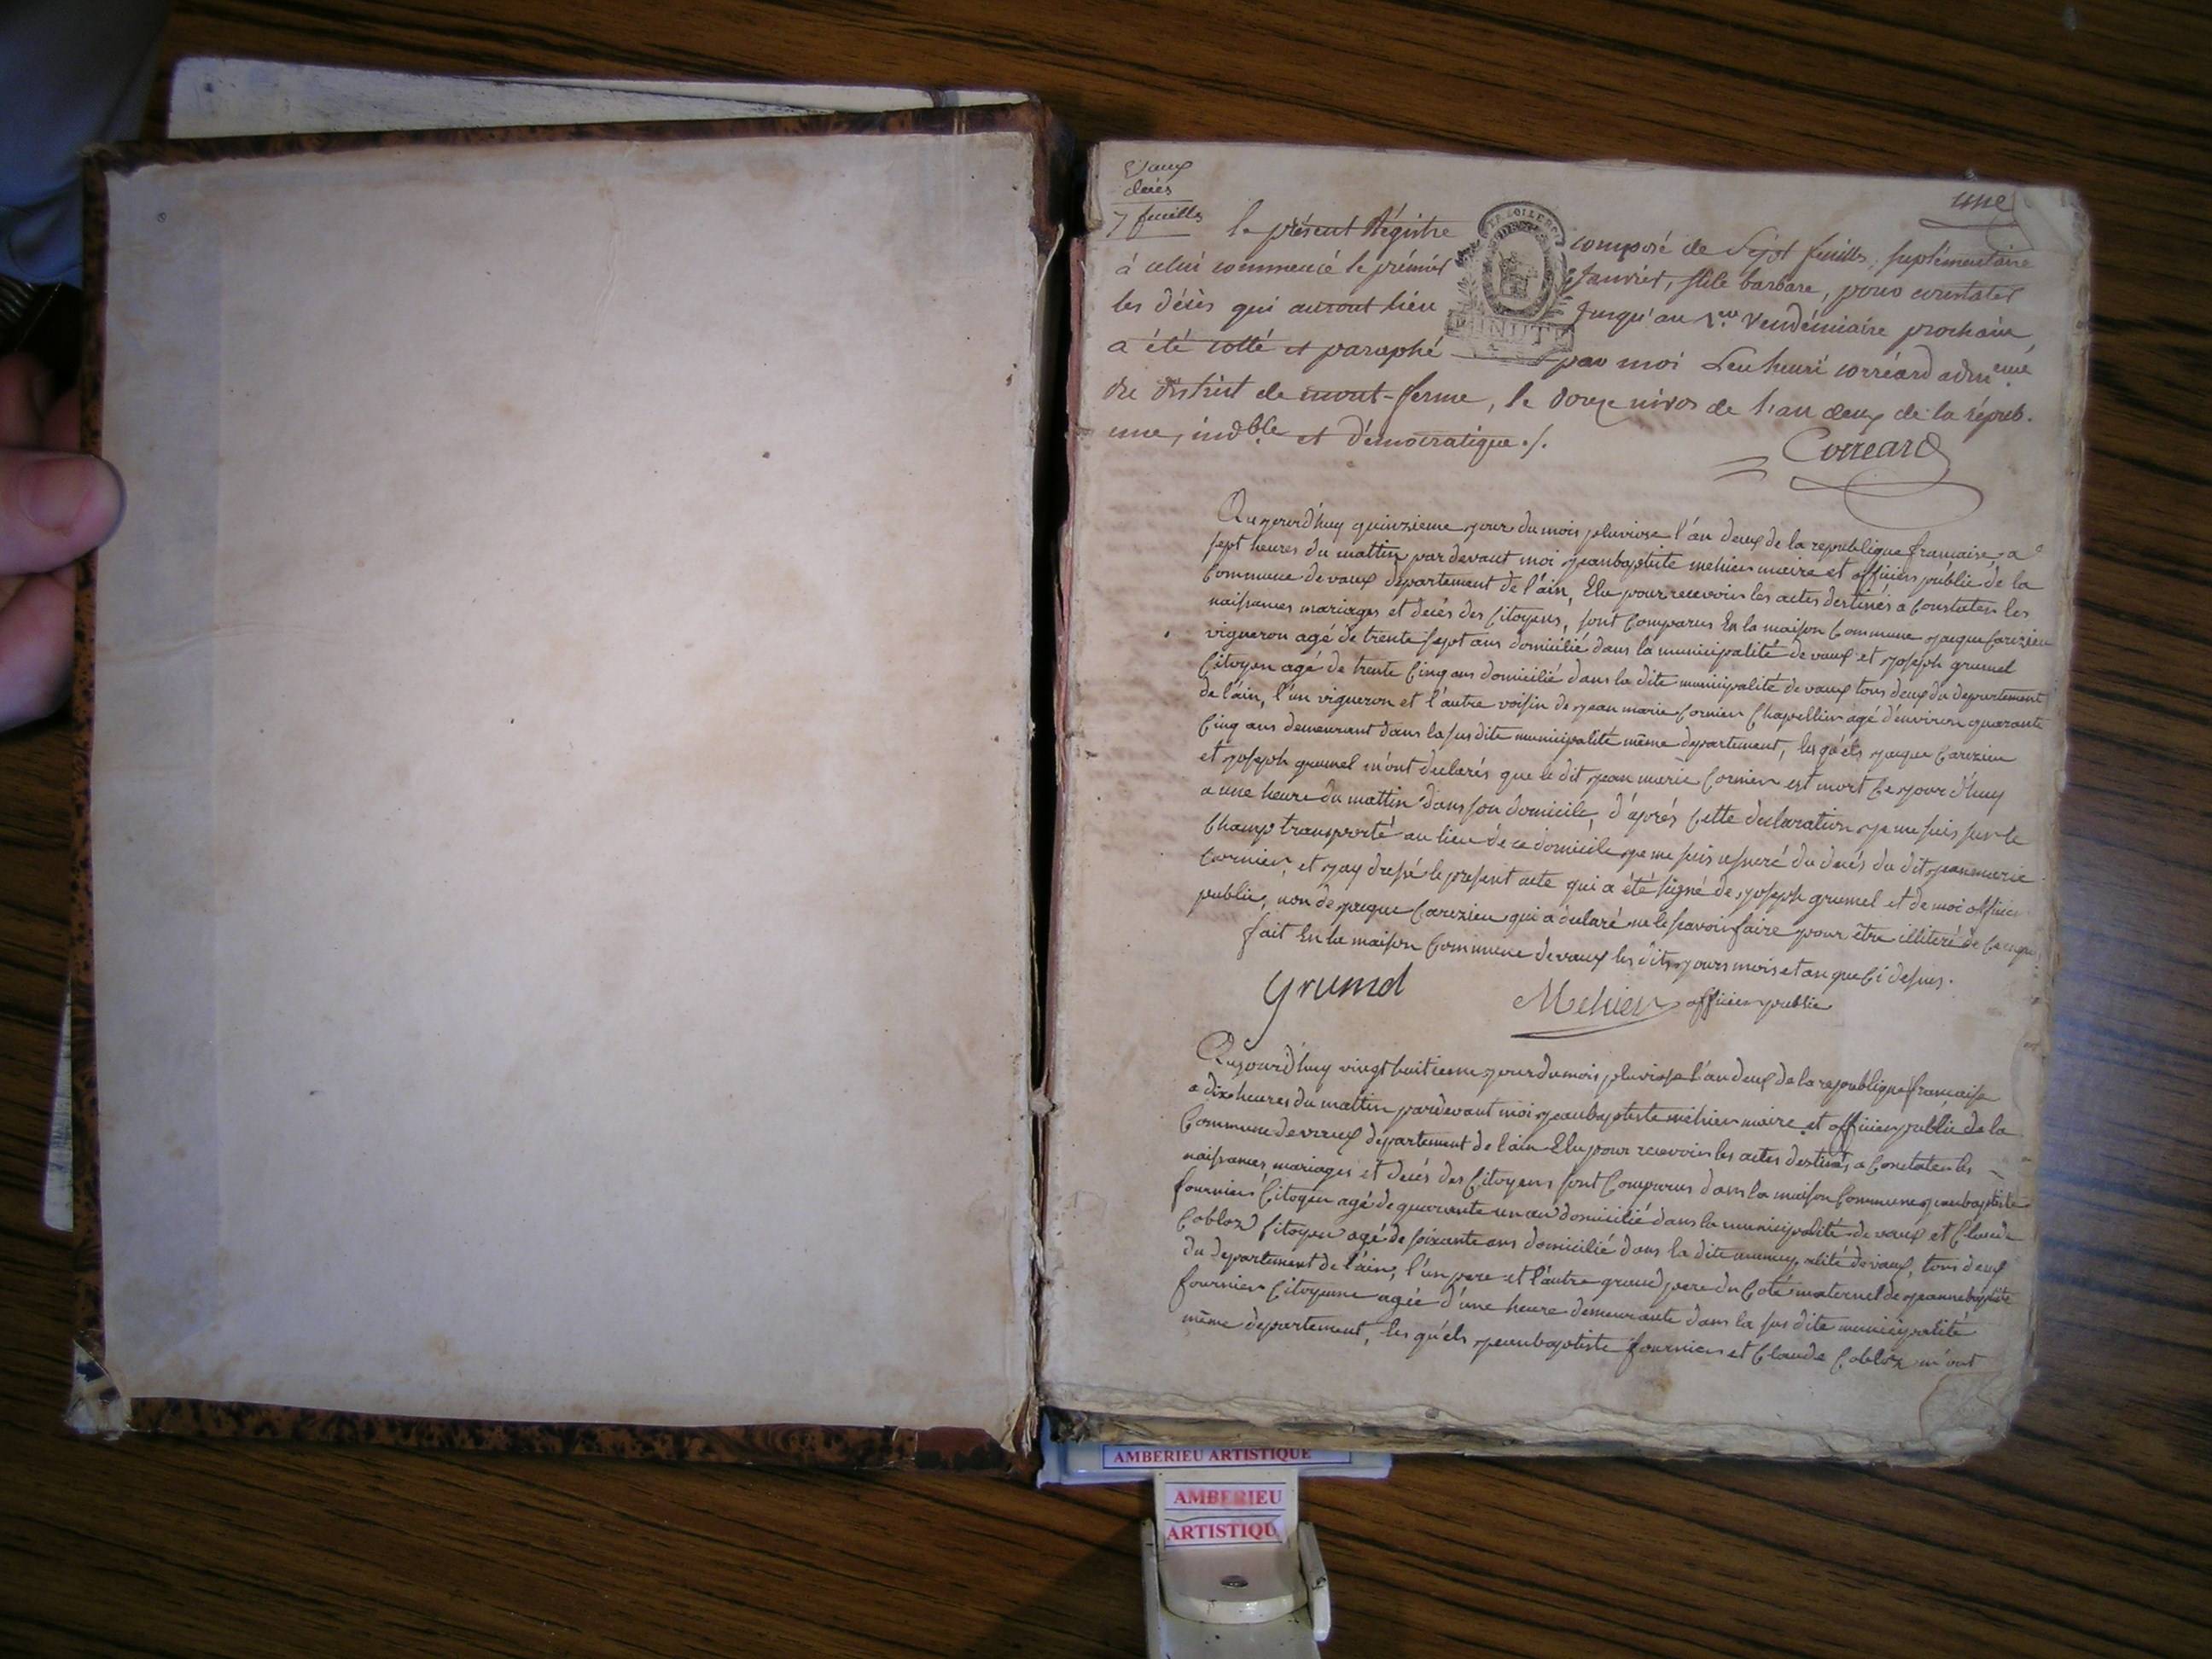 Vaux
décès
7 feuilles
une
le présent Régistre composé de Sept feuilles, suplémentaire
à celui commencé le prémier Janvier, stile barbare, pour constater
les décès qui auront lieu Jusqu'au 1.er Vendémiaire prochain,
a été cotté et paraphé par moi Leu henri corréard
du district de mont-ferme, le douze nivos de l'an deux de la répub.
une, indble et démocratique ./.
Correard
Aujourd'huy quinzieme jour du mois pluviose l'an deux de la republique francaise, a
sept heures du mattin par devant moi jeanbaptiste mehier maire et officier public de la
Commune de vaux département de l'ain, Elu pour recevoir les actes destinés a Constater les
naissances mariages et decés des Citoyens, sont Comparus En la maison Commune jaque Carrier
vigneron agé de trente sept ans domicilié dans la municipalité de vaux et joseph grumel
Citoyen agé de trente Cinq ans domicilié dans la dite municipalité de vaux tous deux du departement
de l'ain, l'un vigneron et l'autre voisin de jean marie Cornier Chapellier agé d'environ quarante
Cinq ans demeurant dans la sus dite municipalité même departement, les qu'els jaque
et joseph grumel m'ont declarés que le dit jean marie Cornier est mort Ce jour d'huy
a une heure du mattin dans son domicile, d'aprés Cette declaration je me suis sur le
Champ transporté au lieu de ce domicile je me suis assuré du decés du dit jean marie
Cornier, et jay dressé le present acte qui a été signé de joseph grumel et de moi officier
public, non de jaque qui a declaré ne le scavoir faire pour être illiteré de Ce enquis
fait En la maison Commune de vaux les dits jours mois et an que Ci dessus.
Grumel
Mehier officier public
Aujourd'huy vingt huitieme jour du mois pluviose l'an deux de la republique francaise
a dix heures du mattin pardevant moi jeanbaptiste mehier maire et officier public de la
Commune de vaux département de l'ain Elu pour recevoir les actes destinés a Constater les
naissances, mariages et decés des Citoyens sont Comparus dans la maison Commune jeanbaptiste
fournier Citoyen agé de quarante un an domicilié dans la municipalité de vaux et Claude
Cobloz Citoyen agé de soixante ans domicilié dans la dite municipalité de vaux, tous deux
du departement de l'ain, l'un pere et l'autre grand pere du Coté maternel de jeanne baptiste
fournier Citoyenne agée d'une heure demeurante dans la sus dite municipalité
même departement, les qu'els jeanbaptiste fournier et Claude Cobloz m'ont
AMBERIEU ARTISTIQUE
AMBERIEU
ARTISTIQU